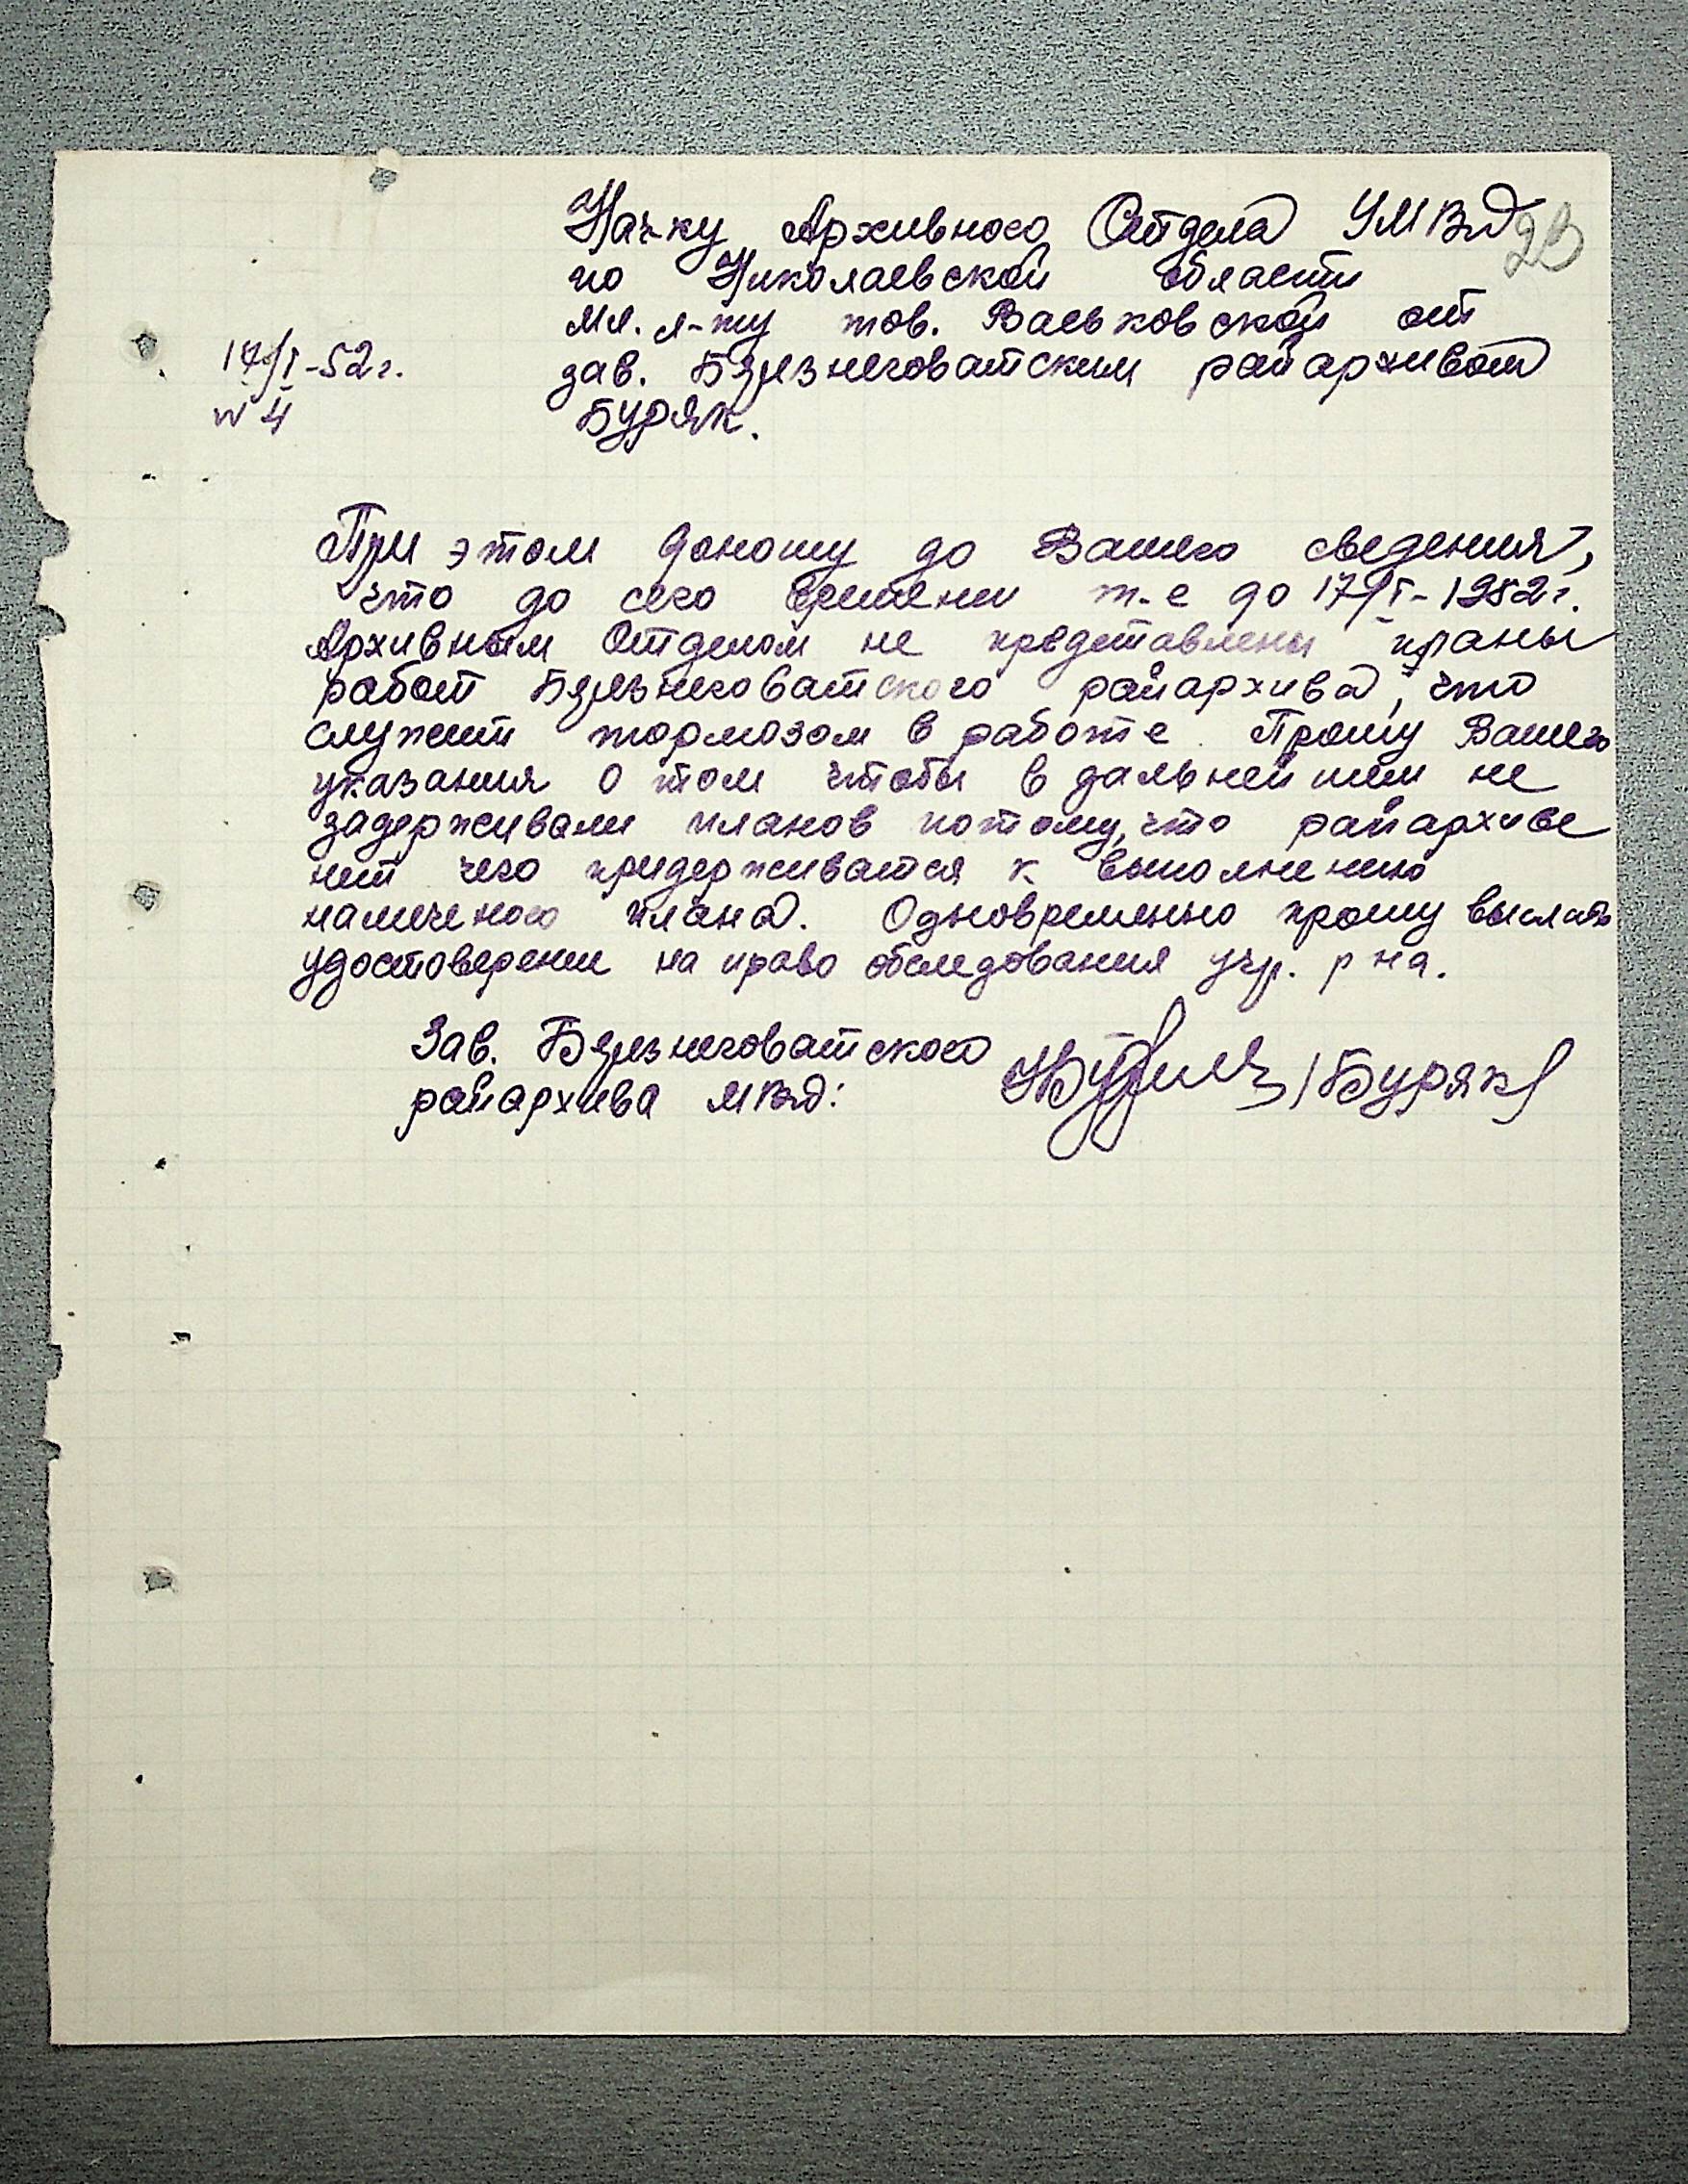 Нач-ку Архивного Отдела УМВД
23
по Николаевской области
мл. л-ту тов. Васьковской от
17/I-52г.
зав. Березнеговатским райархивом
N 4
Буряк.
При этом доношу до Вашего сведения,
что до сего времени т-е до 17/I-1952г.
Архивным Отделом не предетавлены планы
работ Березнеговатского райархива, что
служит тормозом в работе. Прошу Вашего
указания о том чтобы в дальнейшем не
задерживали планов потому, что райархиве
нет чего придерживатся к выполнению
намеченого плана. Одновременно прошу выслать
удостоверение на право обследования учр. р на.
Зав. Березнеговатского
райархива МВД: /Буряк/